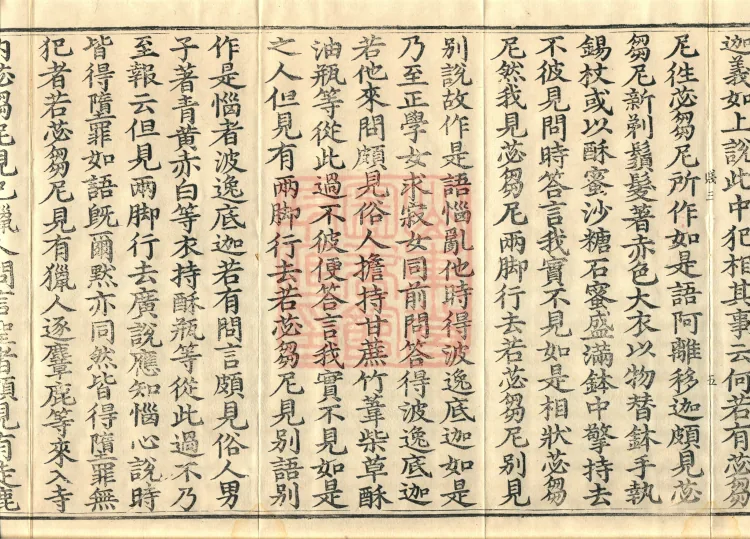 迦義如上說此中犯相其事云何若有苾芻
尼往苾芻尼所作如是語阿離移迦頗見苾
芻尼新剃鬚髮著赤色大衣以物替鉢手執
錫杖或以酥蜜沙糖石蜜盛滿鉢中擎持去
不彼見問時答言我實不見如是相狀苾芻
尼然我見苾芻尼兩脚行去若苾芻尼別見
別說故作是語惱亂他時得波逸底迦如是
乃至正學女求寂女同前問答得波逸底迦
若他來問頗見俗人擔持甘蔗竹葦柴草酥
油瓶等從此過不彼便答言我實不見如是
之人但見有兩脚行去若苾芻尼見別語別
作是惱者波逸底迦若有問言頗見俗人男
子著青黃赤白等衣持酥瓶等從此過不乃
至報云但見兩脚行去廣說應知惱心說時
皆得墮罪如語旣爾默亦同然皆得墮罪無
犯者若苾芻尼見有獵人逐麞鹿等來入寺
內苾芻尼見已獵人問言聖者頗見有走鹿
五